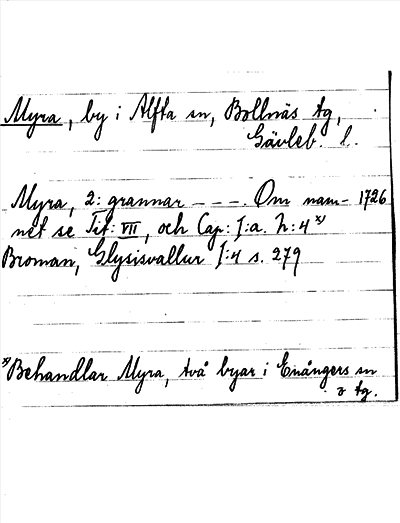 Myra, by i Alfta sn, Bollnäs tg,
Gävleb. l.
Myra, 2: grannar - - -. Om nam- 1726
net se Tit: VII, och Cap: I:a. h: 4 x)
Broman, Glysisvallur I:4 s. 279
x) Behandlar Myra, två byar i Enångers sn
o tg.